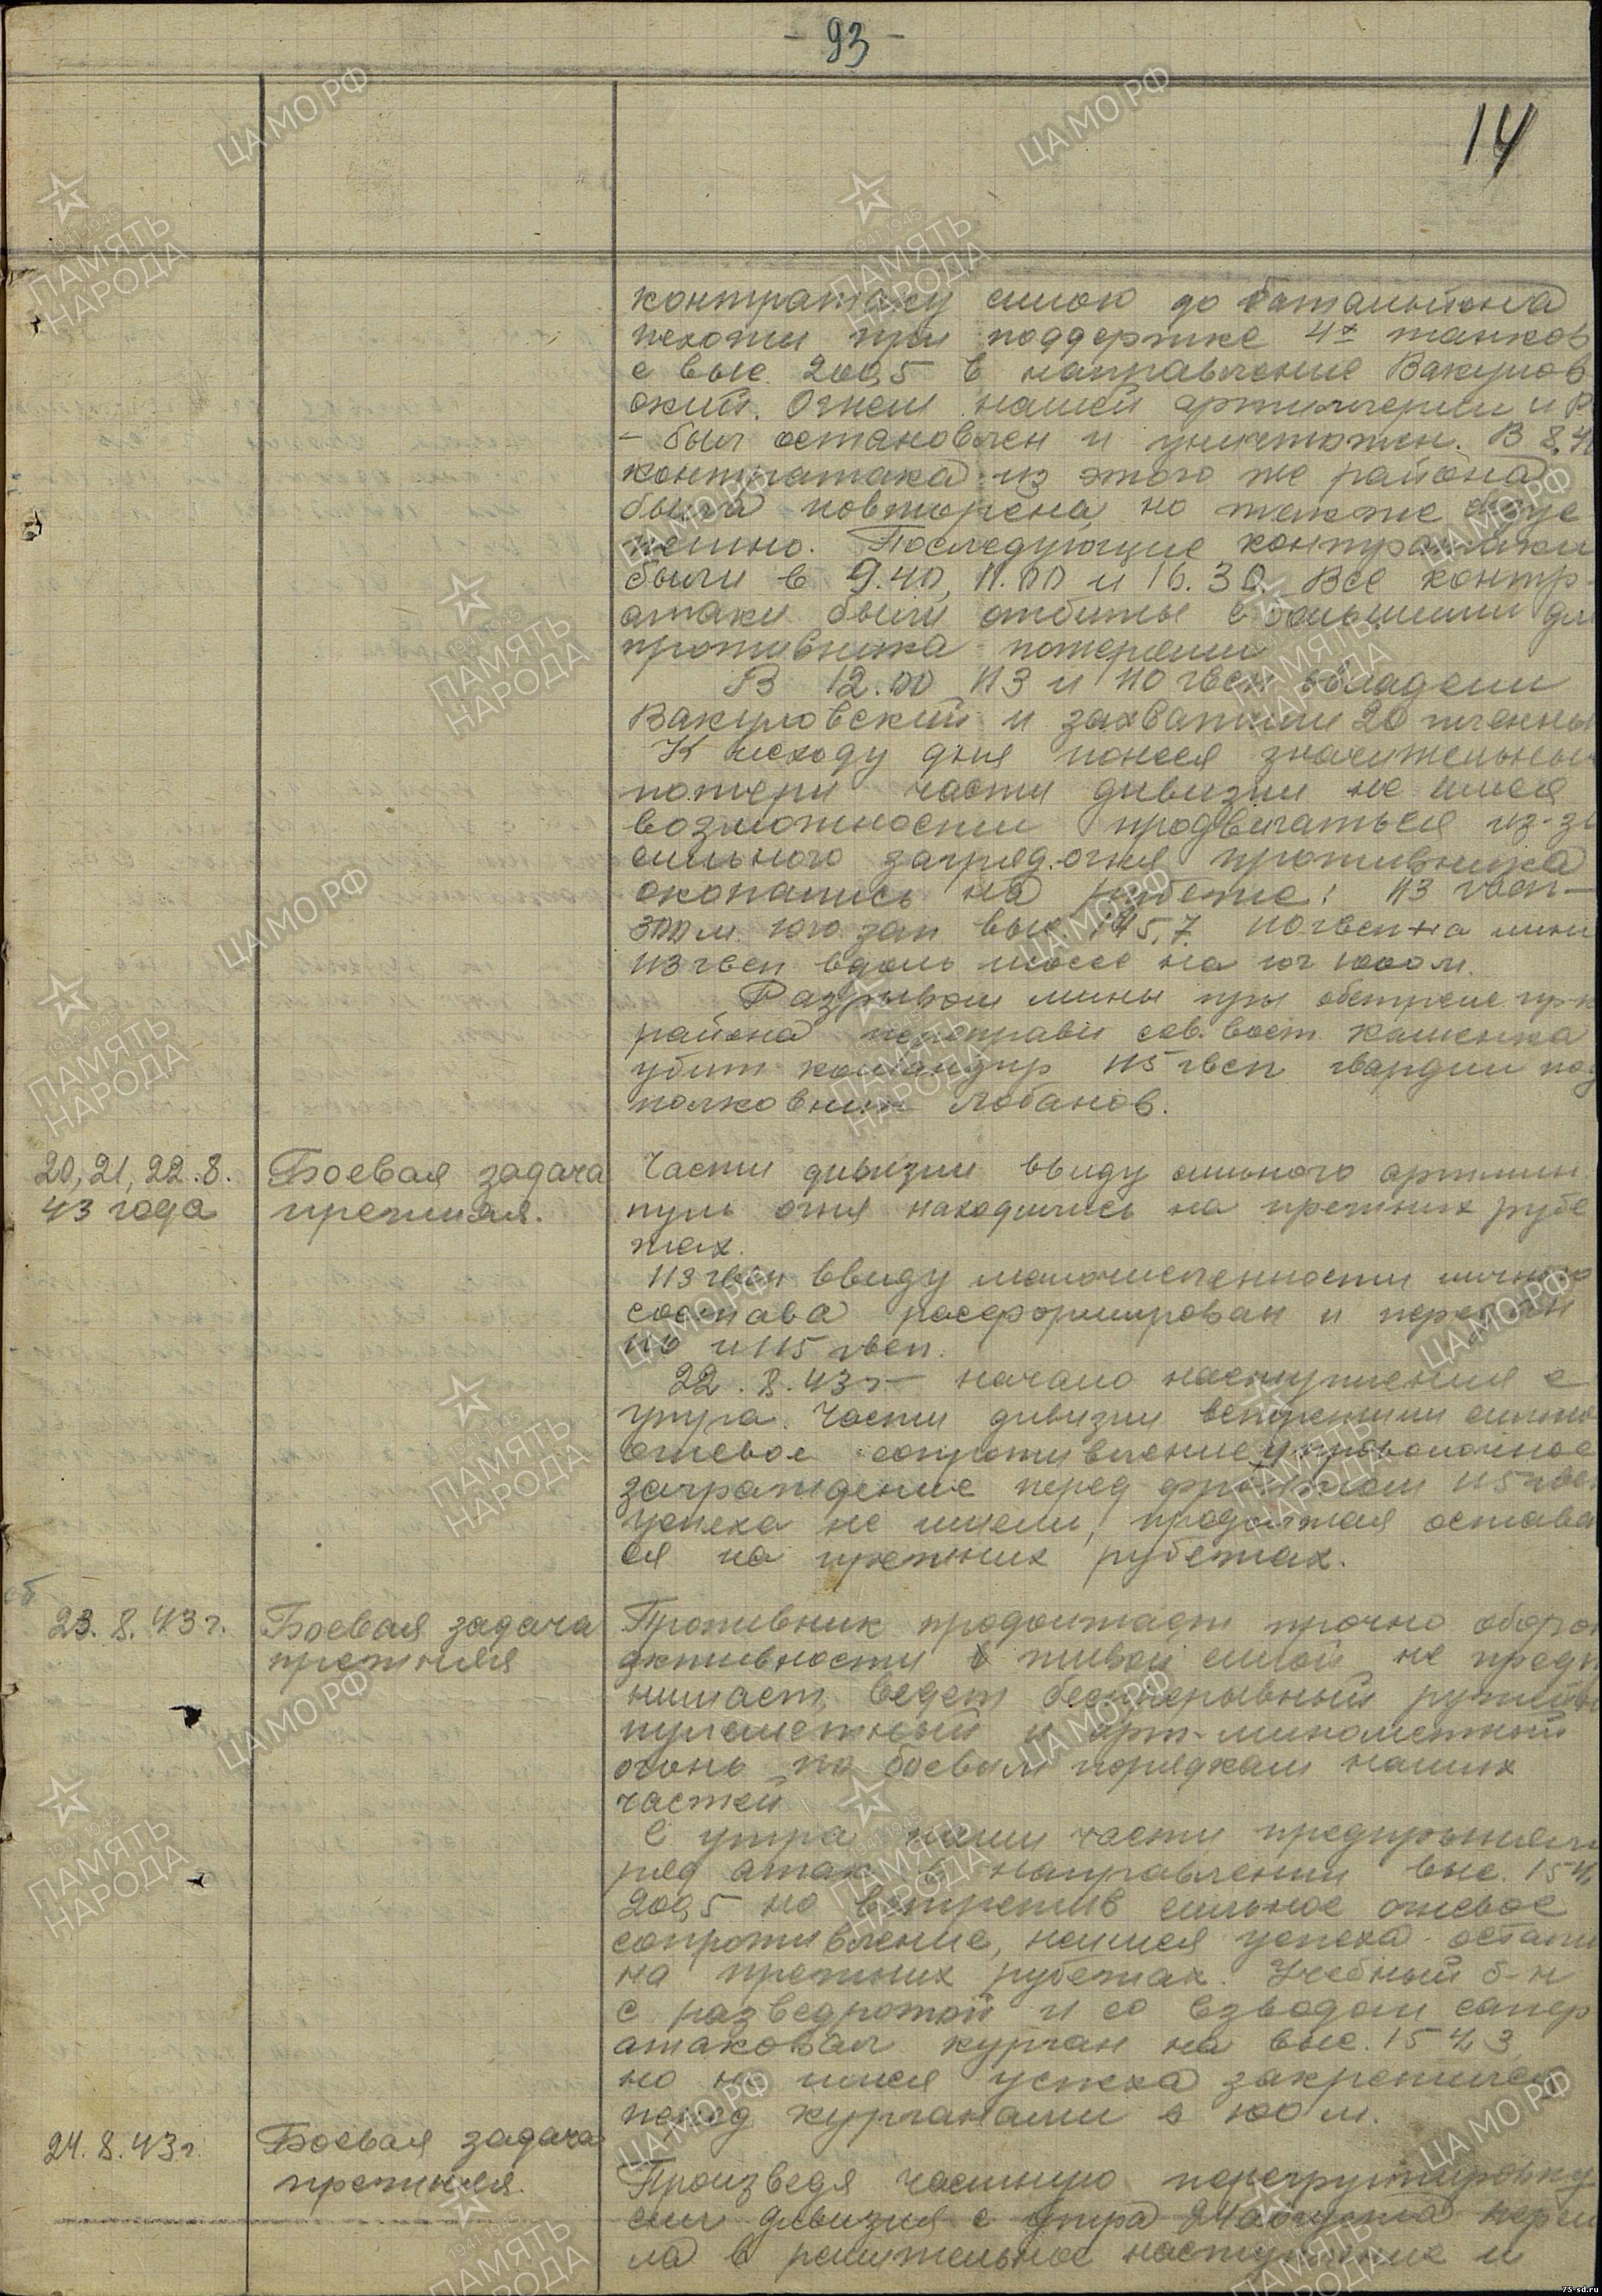 - 93 -
14
контратаку силою до батальйона
пехоты при поддержке 4х танков
с выс. 200,5 в направление Вакулов
ский. Огнем нашей артиллерии и Р
- был остановлен и уничтожен. В 8.4
контратака из этого же района
была повторена, но также безус
пешно. Последующие контратаки
были в 9.40, 11.00 и 16.30. Все контр-
атаки были отбиты с большими дл
противника потерями
В 12.00 113 и 110 гвсп овладели
Вакуловский и захватили 20 пленны
К исходу дня понеся значительные
потери части дивизии не имея
возможности продвигаться из-за
сильного загряд.огня противника
окопались на рубеже: 113 гвсп -
300 м. юго зап выс. 145,7. 110 гвсп на лини
113 гвсп вдоль шоссе на юг 1000 м.
Разрывом мины при обстреле пр-к
района переправы сев. вост. Каменка
убит командир 115 гвсп гвардии под
полковник Лобанов.
20, 21, 22.8.
43 года
Боевая задача
прежняя.
Части дивизии ввиду сильного артмин
пуль огня находились на прежних рубе
жах.
113 гвсп ввиду малочисленности личного
состава расформирован и передан
110 и 115 гвсп.
22.8.43 г. - начало наступления с
утра. Части дивизии встретили сильно
огневое сопротивление и проволочное
заграждение перед фронтом 115 гвсп
успеха не имели, продолжая остава
ся на прежних рубежах.
23.8.43 г.
Боевая задача
прежняя
Противник продолжает прочно оборон
активности живой силой не предп
нимает, ведет беспрерывный ружейн
пулеметный и арт-минометный
огонь по боевым порядкам наших
частей
С утра наши части предприняли
ряд атак в направлении выс. 154,
200,5 но встретив сильное огневое
сопротивление, неимея успеха остали
на прежних рубежах. Учебный б-н
с разведротой и со взводом сапер
атаковал курган на выс. 154,3
но не имея успеха закрепился
перед курганами в 100 м.
24.8.43 г.
Боевая задача
прежняя.
Произведя частную перегруппировку
сил дивизия с утра 24 августа переш
ла в решительное наступление и
ЦА МО РФ
1941-1945
ПАМЯТЬ
НАРОДА
75-sd.ru